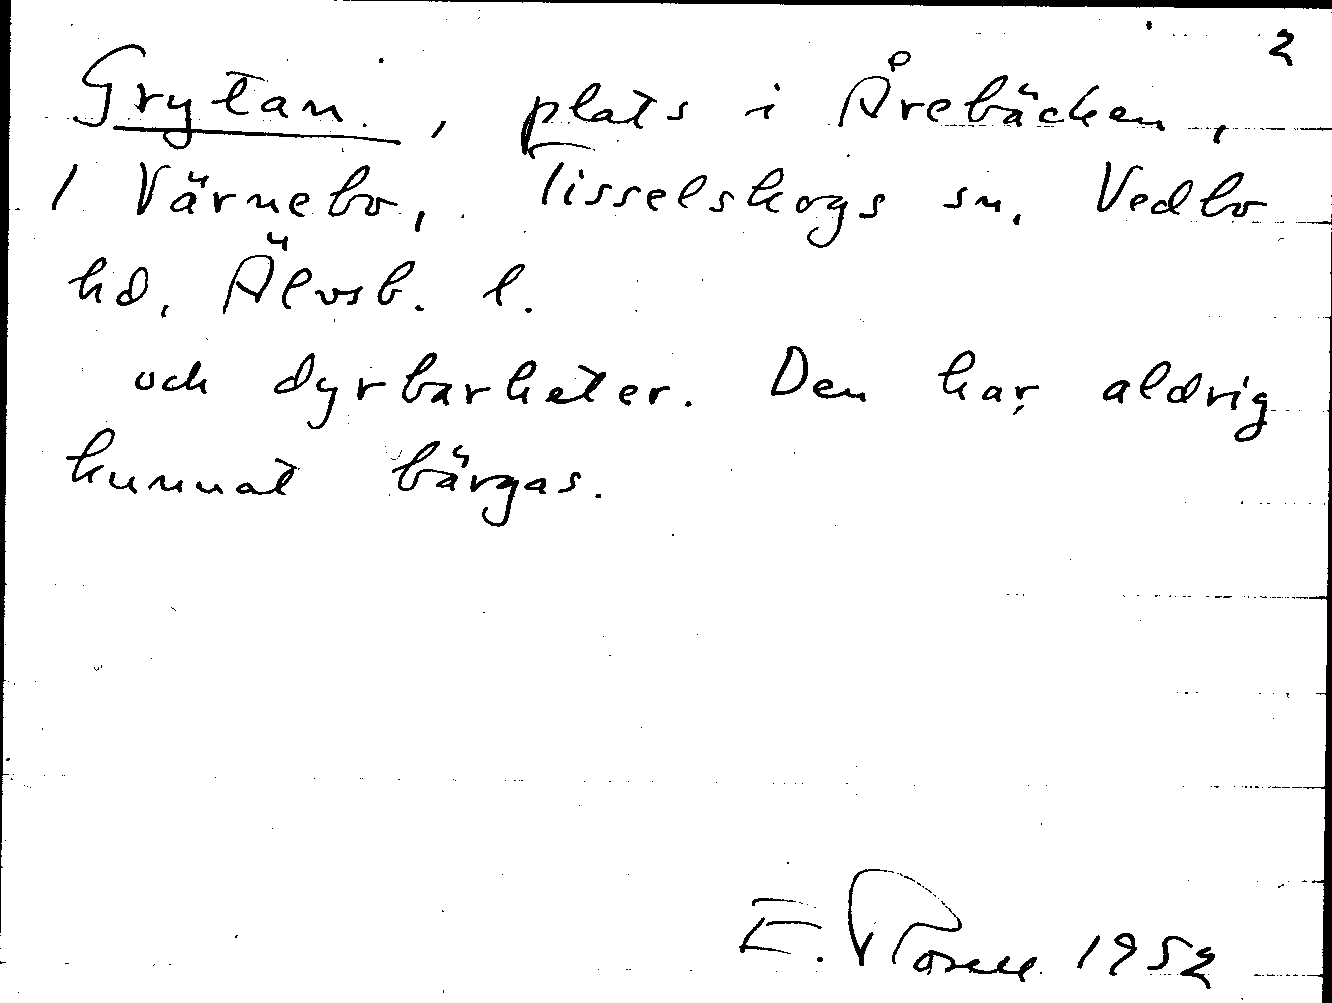 2
Grytan, plats i Årebäcken,
1 Värnebo, Tisselskogs sn, Vedbo
hd, Älvsb. l.
och dyrbarheter. Den har aldrig
kunnat bärgas.
E. 1952